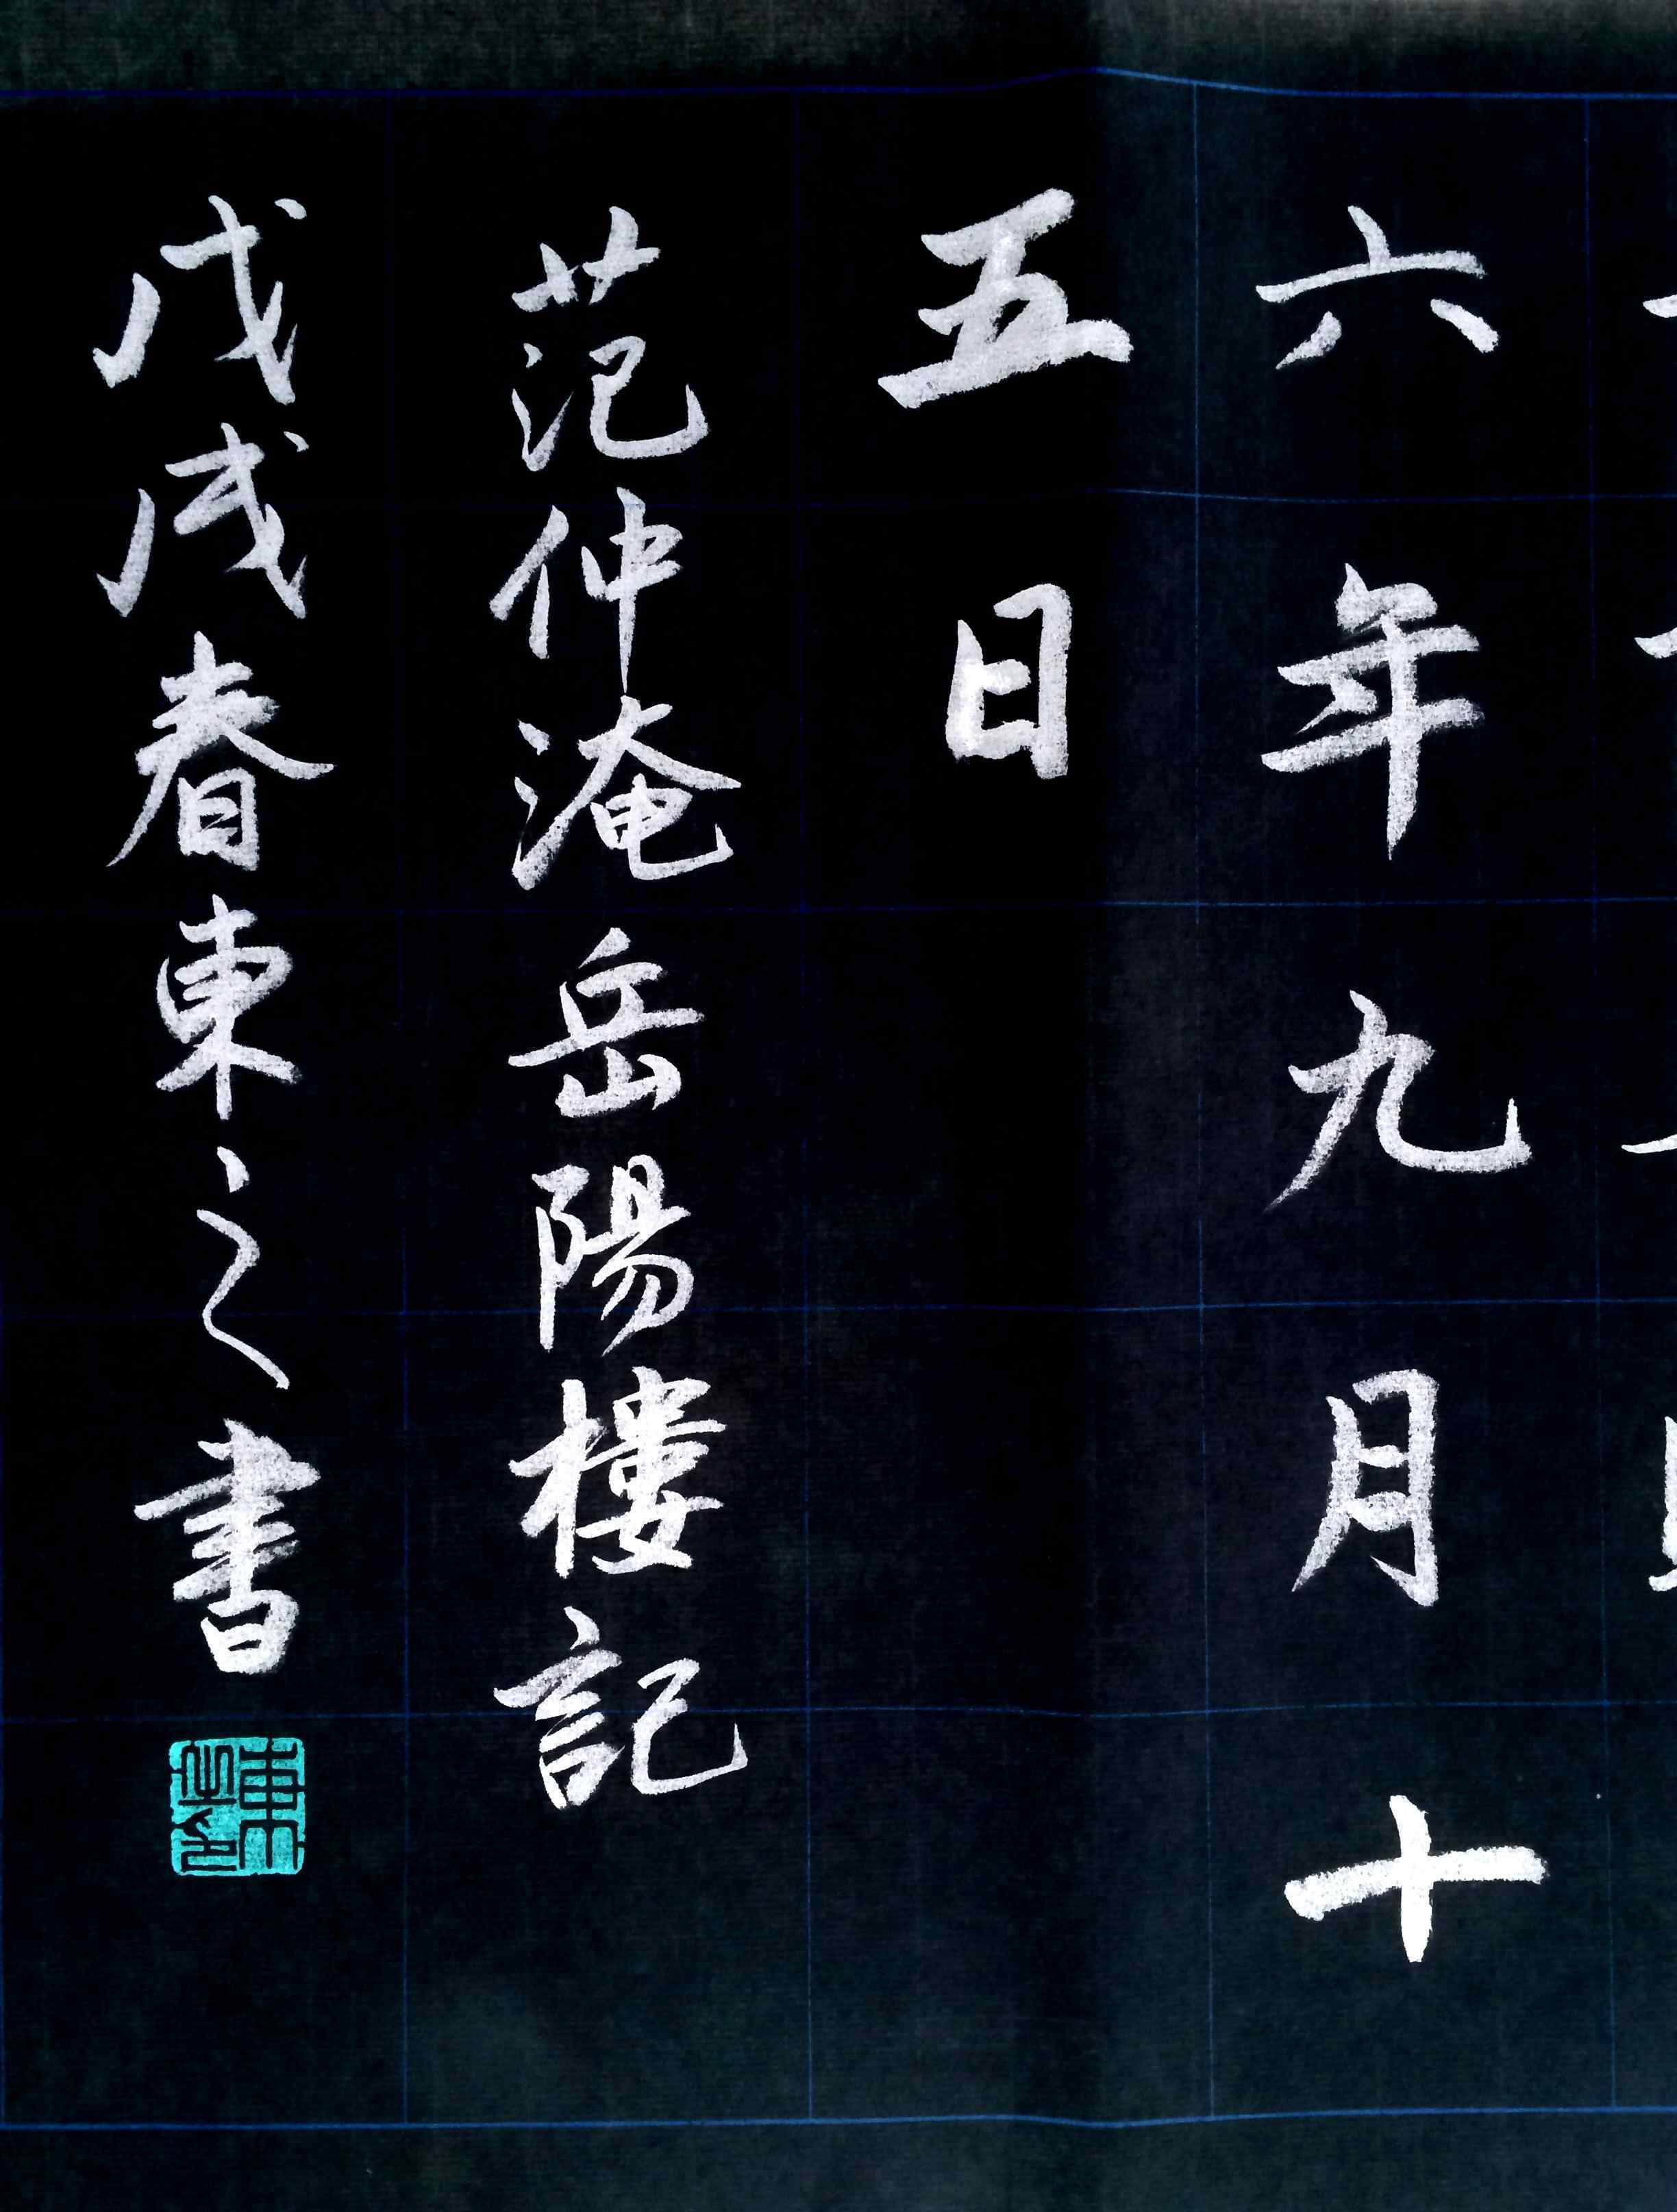 六年九月十
五日
范仲淹岳陽樓記
戊戌春東之書
東之印